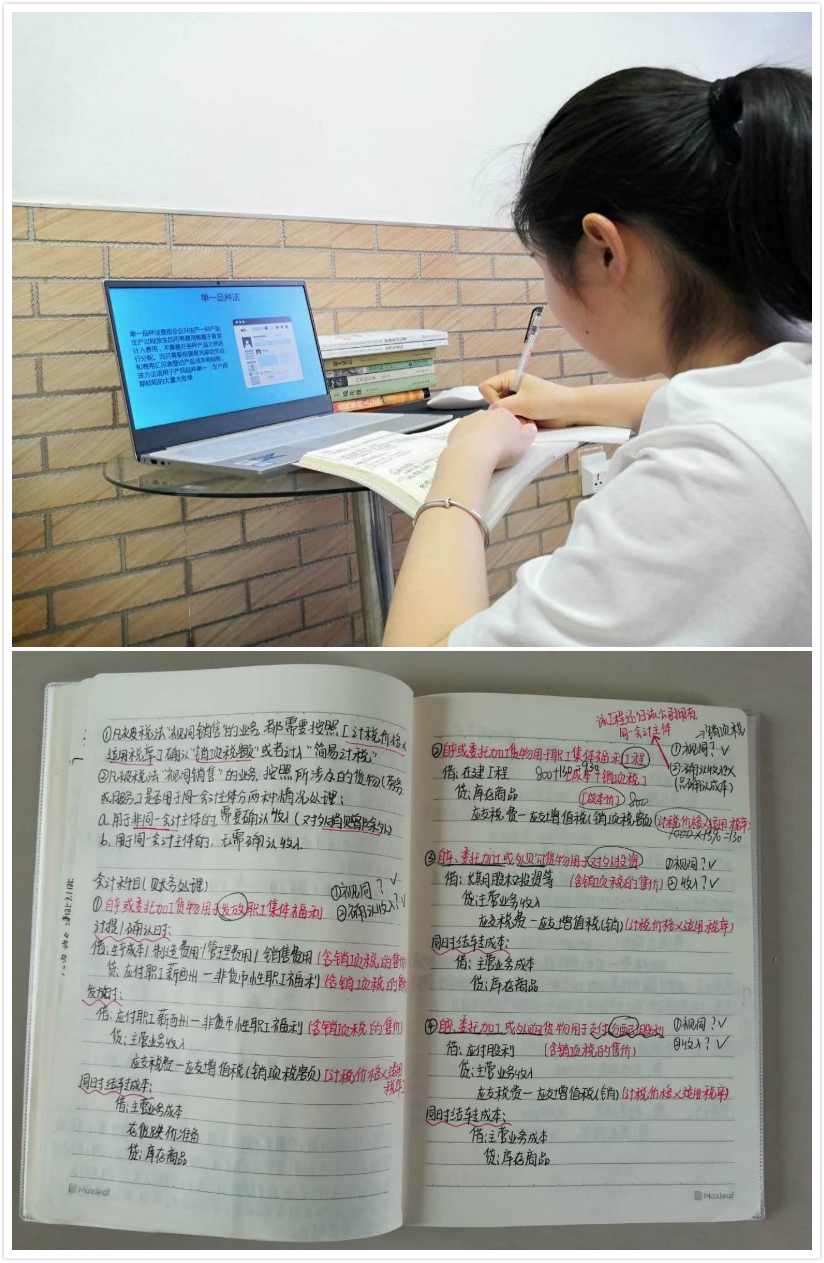 单一品种法
单一品种法是指企业只生产一种产品
①凡被税法"视同销售"的业务,都需要按照[计税价格×
适用税率]确认"销项税额"或者计入"简易计税"
②凡被税法"视同销售"的业务,按照所涉及的货物(劳务,
或服务)是否用于同一会计主体分两种情况处理:
a.用于非同一会计主体的,需要确认收入(对外捐赠除外)
b.用于同一会计主体的,无需确认收入.
会计科目(财务处理)
①视同?✓
①自产或委托加工货物用于发放职工集体福利
②确认收入?✓
计提/确认时:
借:生产成本/制造费用/管理费用/销售费用(含销项税的售价)
贷:应付职工薪酬—非货币性职工福利(含销项税的
发放时:
借:应付职工薪酬—非货币性职工福利(含销项税的售价)
贷:主营业务收入
应交税费—应交增值税(销项税额)[计税价格×适用
税率]
同时结转成本:
借:主营业务成本
存货跌价准备
贷:库存商品
Maxleaf
该工程还归该公司拥有
同一会计主体
销项税
②自产或委托加工货物用于职工集体福利[工程
①视同?✓
借:在建工程 800+130 [成本+销项税]
②确认收入×
(只确认成本)
贷:库存商品 [成本价] 800
应交税费—应交增值税(销项税额)(计税价格×适用税率)
1000×13%=130
③自产、委托加工或外购货物用于对外投资 ①视同?✓
借:长期股权投资等 (含销项税的售价) ②收入?✓
贷:主营业务收入
应交税费—应交增值税(销)(计税价格×适用税率)
同时结转成本:
借:主营业务成本
贷:库存商品
④自产、委托加工或外购货物用于支付(分配)股利 ①视同?✓
借:应付股利 (含销项税的售价) ②收入?✓
贷:主营业务收入
应交税费—应交增值税(销)(计税价格×适用税率)
同时结转成本:
借:主营业务成本
贷:库存商品
Maxleaf